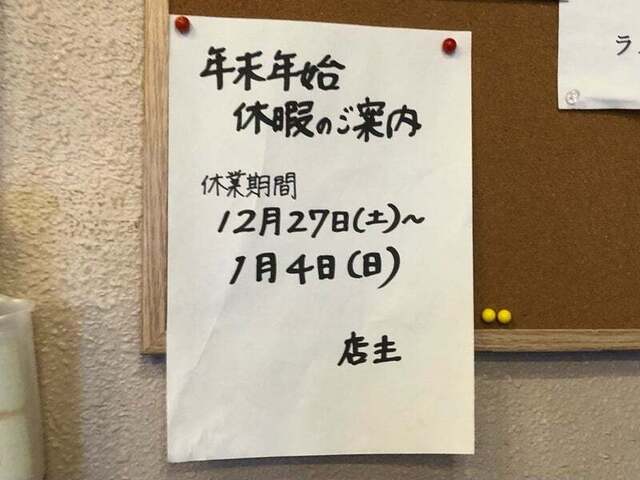 年末年始
休暇のご案内
休業期間
12月27日(土)~
1月4日(日)
店主
ラ